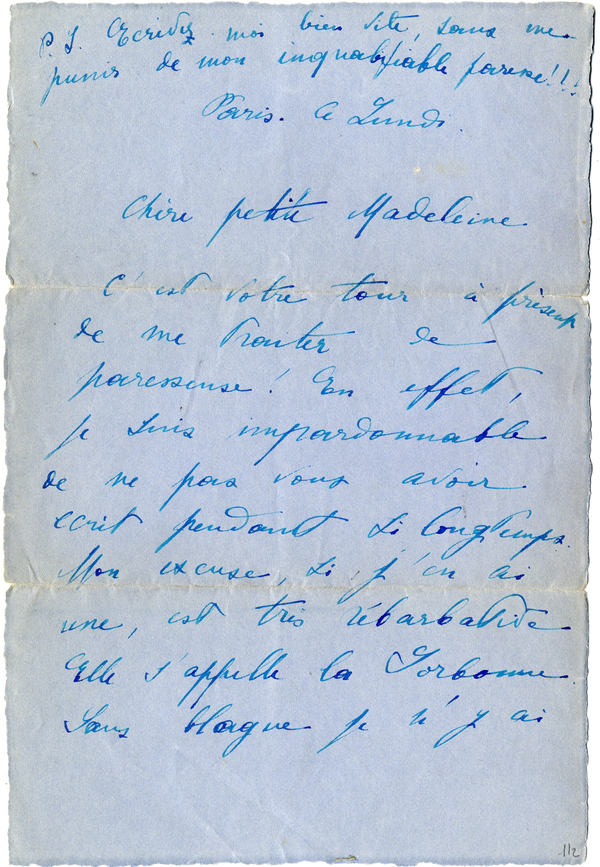 P.S. Ecrivez moi bien vite, sans me
punir de mon inqualifiable paresse!!!
Paris. Ce Lundi.
Chère petite Madeleine
C'est votre tour à présent
de me traiter de
paresseuse! En effet,
je suis impardonnable
de ne pas vous avoir
écrit pendant si longtemps.
Mon excuse, si j'en ai
une, est très rébarbative
Elle s'appelle la Sorbonne.
Sans blague je n'y ai
112